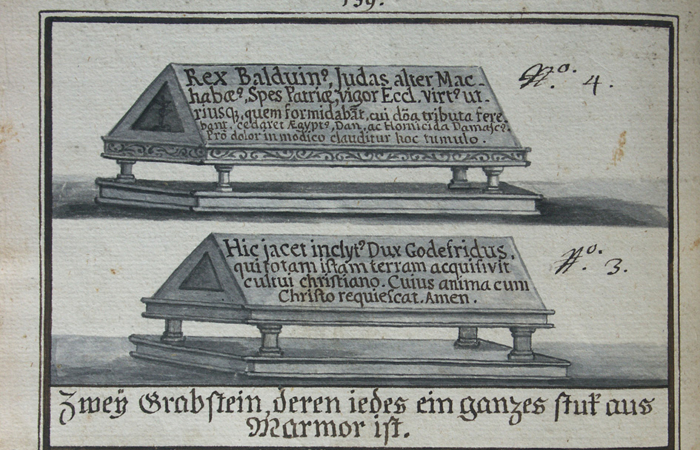 139.
Rex Balduin⁹, Judas alter Mac-
habæ⁹, Spes Patriæ, Vigor Eccl. Virt⁹ ut-
riusq, quem formidabāt, cui dōa tributa fere-
bant. cedaret Ægypt⁹, Dan, ac Homicida Damasc⁹.
Pro dolor in modico clauditur hoc tumulo.
N.º 4.
Hic jacet inclyt⁹ Dux Godefridus,
qui totam istam terram acquisivit
cultui christiano. Cuius anima cum
Christo requiescat. Amen.
N.º 3.
Zweÿ Grabstein, deren iedes ein ganzes stuk aus
Marmor ist.